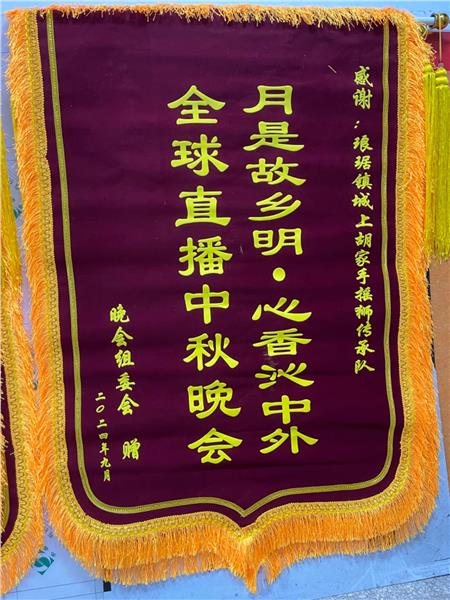 感谢：琅琚镇城上胡家手摇狮传承队
月是故乡明·心香沁中外
全球直播中秋晚会
晚会组委会 赠
二〇二四年九月